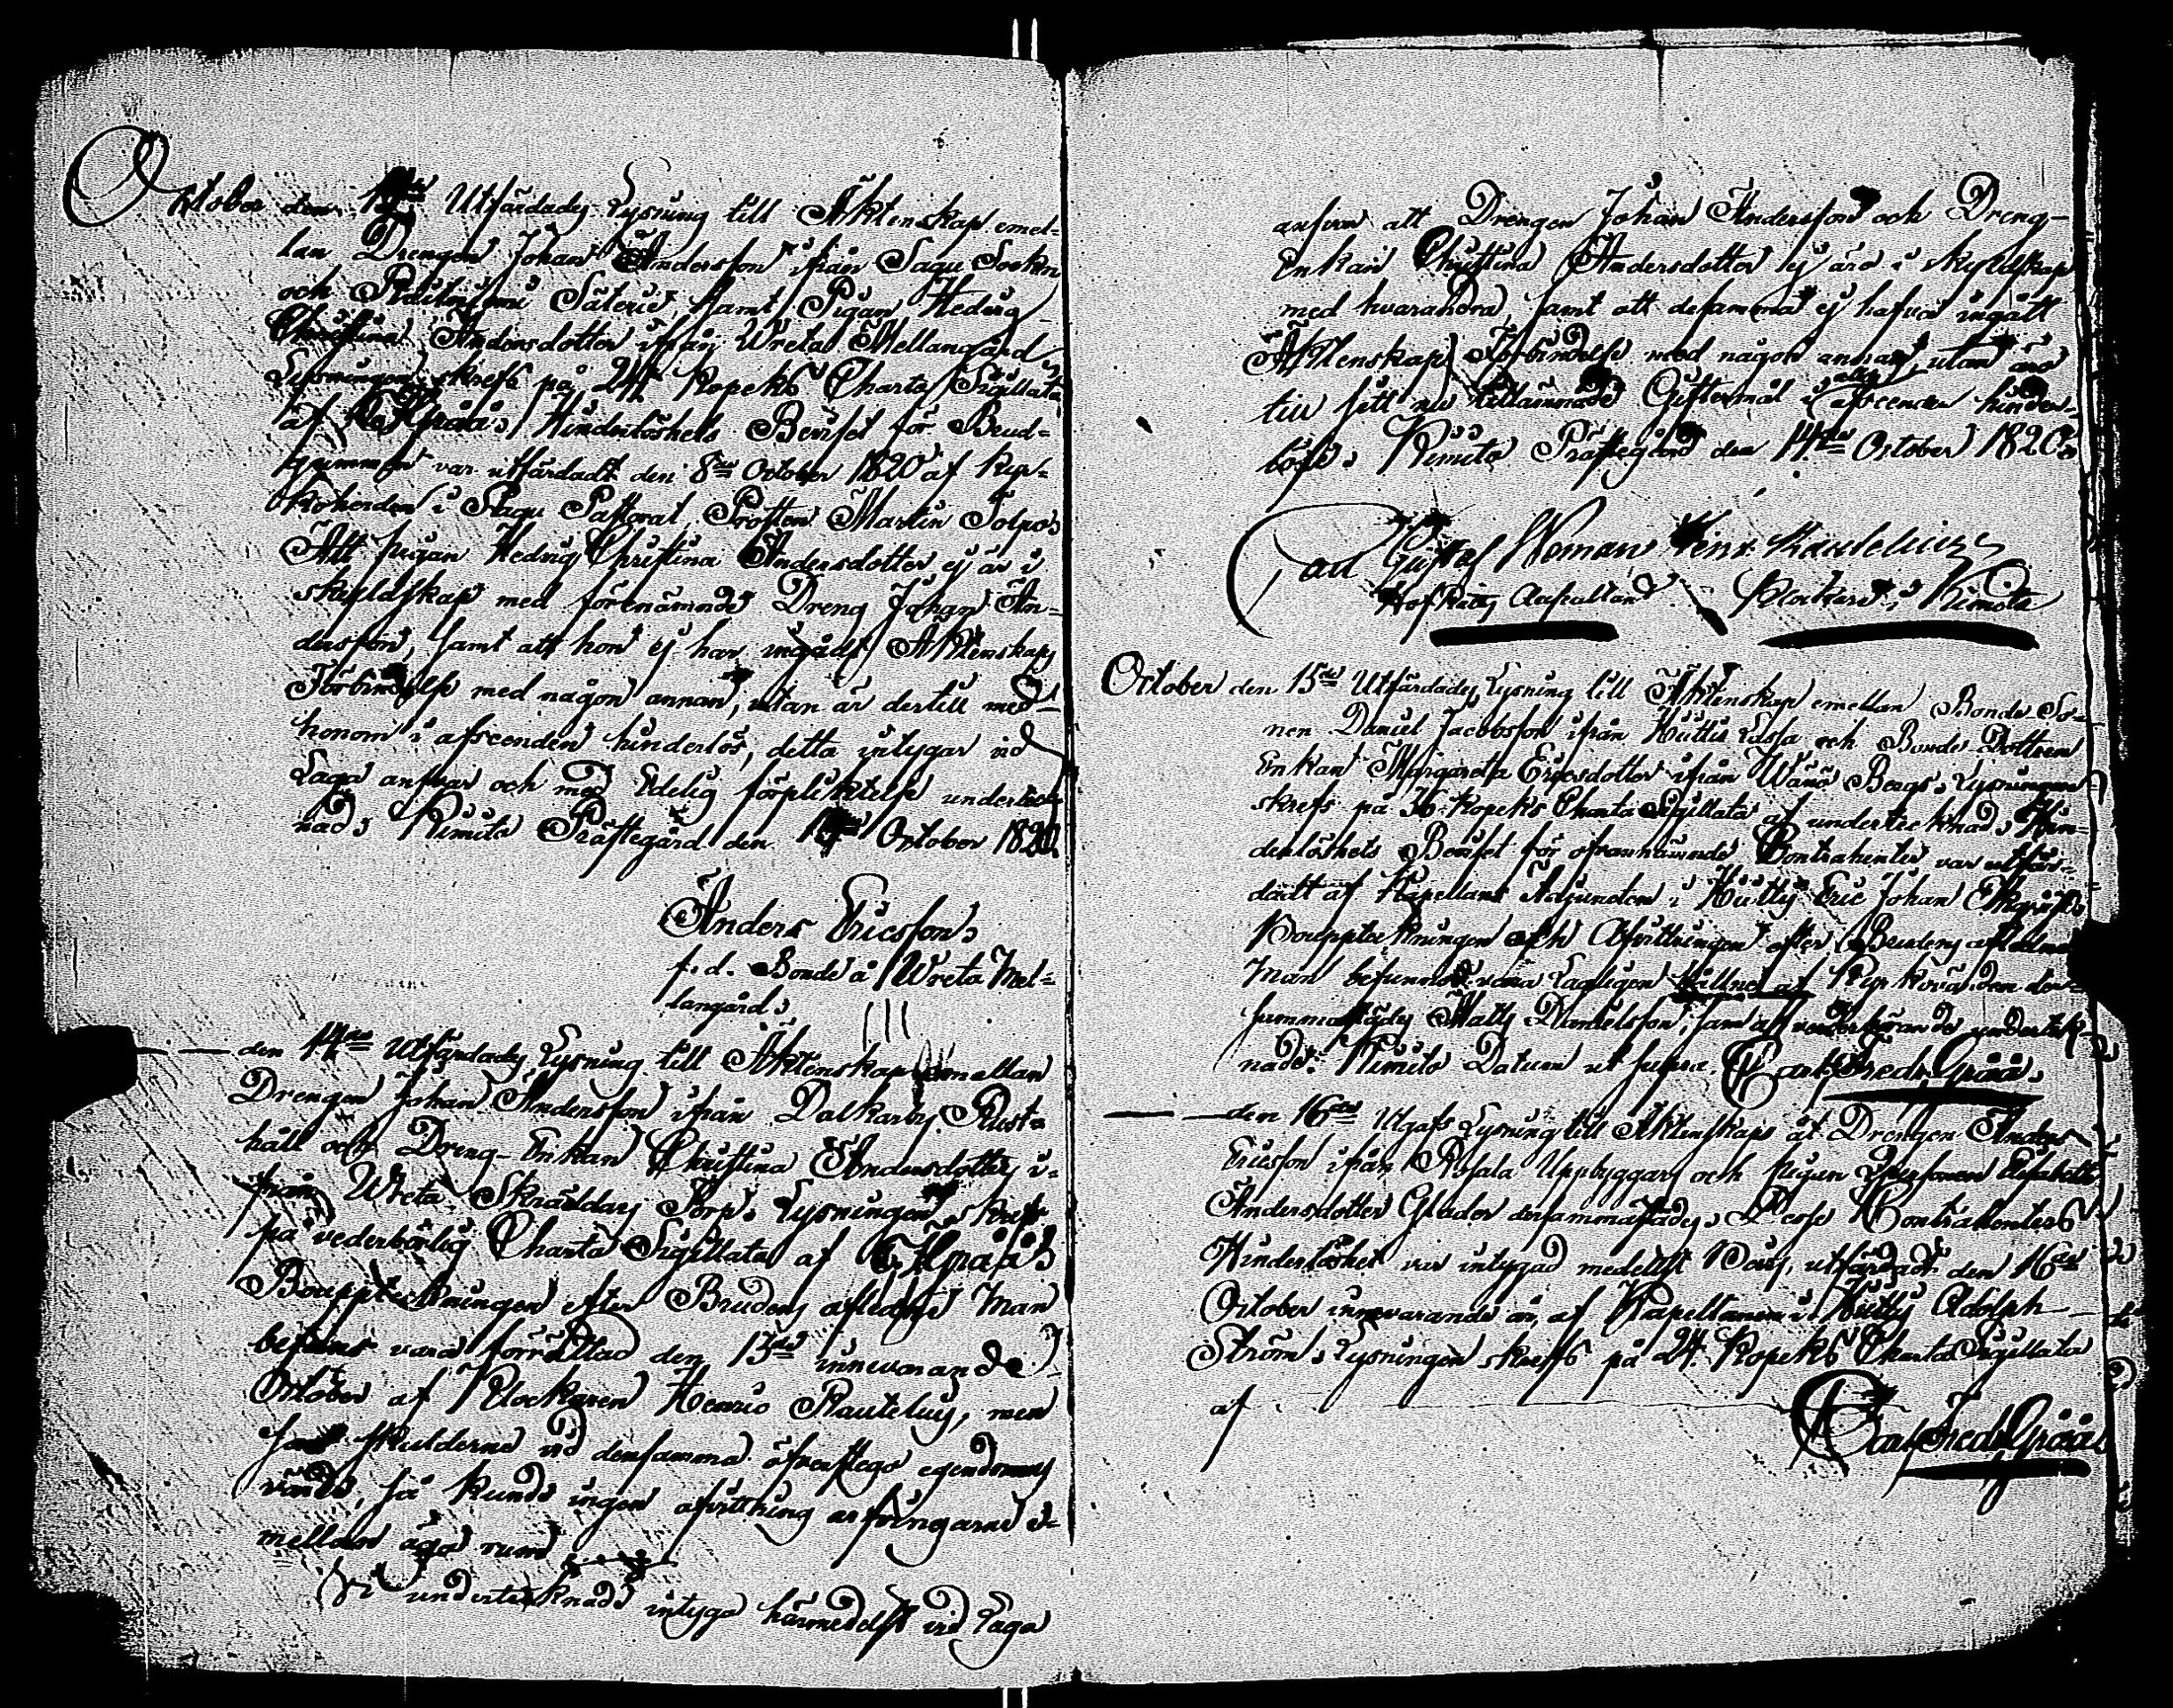 October den 14de Utfärdades Lysning till Äktenskap emel-
lan Drengen Johan Andersson ifrån Sagu Sockn
och Säteriet, samt Pigan Hedvig
Christina Andersdotter ifrån Wreta Mellangård
Lysningen skrefs på 24 Kopeks Charta Sigillata
af Hinderlöshets Beviset för Brud-
gummen var utfärdadt den 8de October 1820 af Kyr-
koherden i Sagu Pastorat, Prosten Martin Tolpo.
Att pigan Hedvig Christina Andersdotter ej är i
skyldskap med förenämnde Dreng Johan An-
dersson, samt att hon ej har ingådt Äktenskaps
Förbindelse med någon annan, utan är dertill med
honom i afseende hinderlös, detta intygar vid
Laga answar och med Edelig förpliktelse underteck-
nad. Kimito Prästegård den October 1820.
Anders Ericsson.
f. d. Bonde å Wreta Mel-
langård.
den 14de Utfärdades Lysning till Äktenskap emellan
Drengen Johan Andersson ifrån Dalkarby Rust-
håll och Dreng-Enkan Christina Andersdotter i-
från Wreta Skräddars Torp. Lysningen skrefs
på vederbörlig Charta Sigillata af
Bouppteckningen efter Brudens aflidne Man
befans vara förrättad den 13de innevarande
October af Klockaren Henric Rautelius, men
som skulderne vid densamma öfverstego egendomens
värde, så kunde ingen afvittring arfvingarne e-
mellan äga rum
Vi undertecknade intyga härmedelst vid Laga
ansvar att Drengen Johan Andersson och Dreng-
Enkan Christina Andersdotter ej äro i skyldskap
med hvarandra, samt att desamma ej hafva ingått
Äktenskaps Förbindelse med någon annan, utan äro
till sitt nu tillämnade Giftermål i alla afseenden hinder-
löse. Kimito Prästegård den 14de October 1820.
Carl Gustaf Homan Henr. Rautelius
Hofrätts Auscultant. Klockare i Kimito
October den 15de Utfärdades Lysning till Äktenskap emellan Bonde So-
nen Daniel Jacobsson ifrån Hiittis och Bonde Dottren
Enkan Margareta Ericsdotter ifrån Wänö Bergs. Lysningen
skrefs på 36 kopeks Charta Sigillata af undertecknad. Hin-
derlöshets Beviset för ofvannämnde Contrahenter var utfär-
dadt af Kapellans Adjuncten i Hiittis Eric Johan
Bouppteckningen och Afvittringen efter Brudens aflidne
Man befunnos vara Lagligen hållne af den-
sammastädes Matts Danielsson, samt undertek-
nade. Kimito Datum ut supra. Carl Fredr. Grää.
den 16de Utgafs Lysning till Äktenskap åt Drengen Anders
Ericsson ifrån Rosala Uppbyggars och pigan
Andersdotter Glader dersammastädes. Desse Contrahenters
Hinderlöshet var intygad medelst Bevis, utfärdadt den 16de
October innevarande år, af Kapellanen i Hiittis Adolph
Ström. Lysningen skrefs på 24 Kopeks Charta Sigillata
af
Carl Fredr. Grää.